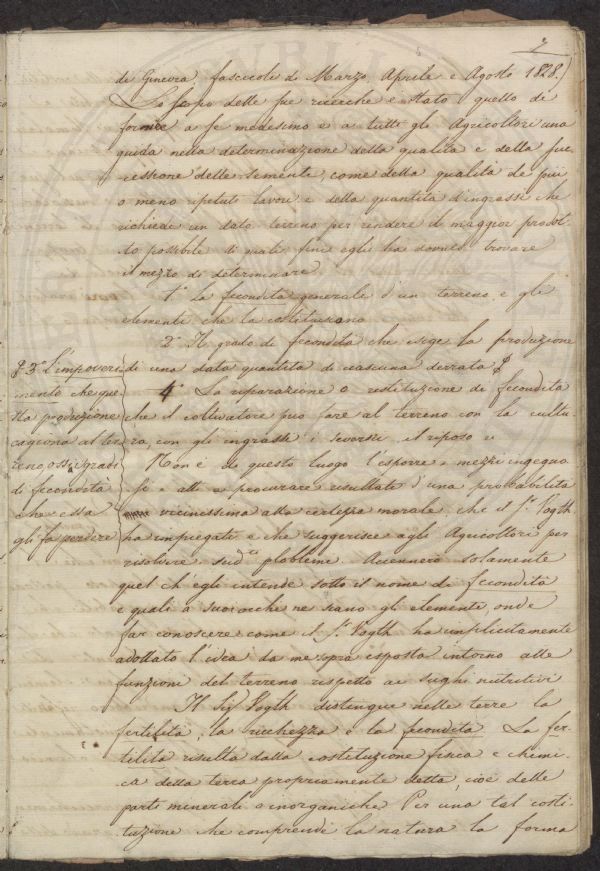 2
di Ginevra, fascicoli di Marzo, Aprile e Agosto 1828.)
Lo scopo delle sue ricerche è stato quello di
fornire a se medesimo e a tutti gli Agricoltori una
guida nella determinazione della qualità e della suc
cessione delle semente, come della qualità de più
o meno ripetuti lavori e della quantità d'ingrassi che
richiede un dato terreno per rendere il maggior prodot
to possibile di quali fini egli ha dovuto trovare
il mezzo di determinare.
1.° La fecondità generale d'un terreno e gli
elementi che la costituiscono
2.° Il grado di fecondità che esige la produzione
di una data quantità di ciascuna derrata
3.° L'impoveri
mento che que
sta produzione
cagiona al ter
reno, ossia i gradi
di fecondità
che essa
gli fa perdere
4.° La riparazione o restituzione di fecondità
che il coltivatore può fare al terreno con la cultu
ra, con gli ingrassi i soversi, il riposo
Non è di questo luogo l'esporre i mezzi ingegno
si e atti a procurare risultati d'una probabilità
vicinissima alla certezza morale, che il S.r Vogth
ha impiegati e che suggerisce agli Agricoltori per
risolvere sud.ti plobleme Accennerò solamente
quel ch'egli intende sotto il nome di fecondità
e quali a suo ne siano gli elementi, onde
far conoscere come il S.r Vogth ha implicitamente
adottato l'idea da me sopra esposta intorno alle
funzioni del terreno rispetto ai sughi nutritivi
Il Sig Vogth distingue nelle terre la
fertilità, la ricchezza e la fecondità. La fer
tilità risulta dalla costituzione fisica e chimi-
ca della terra propriamente detta, cioè delle
parti minerali o inorganiche. Per una tal costi-
tuzione che comprende la natura la forma